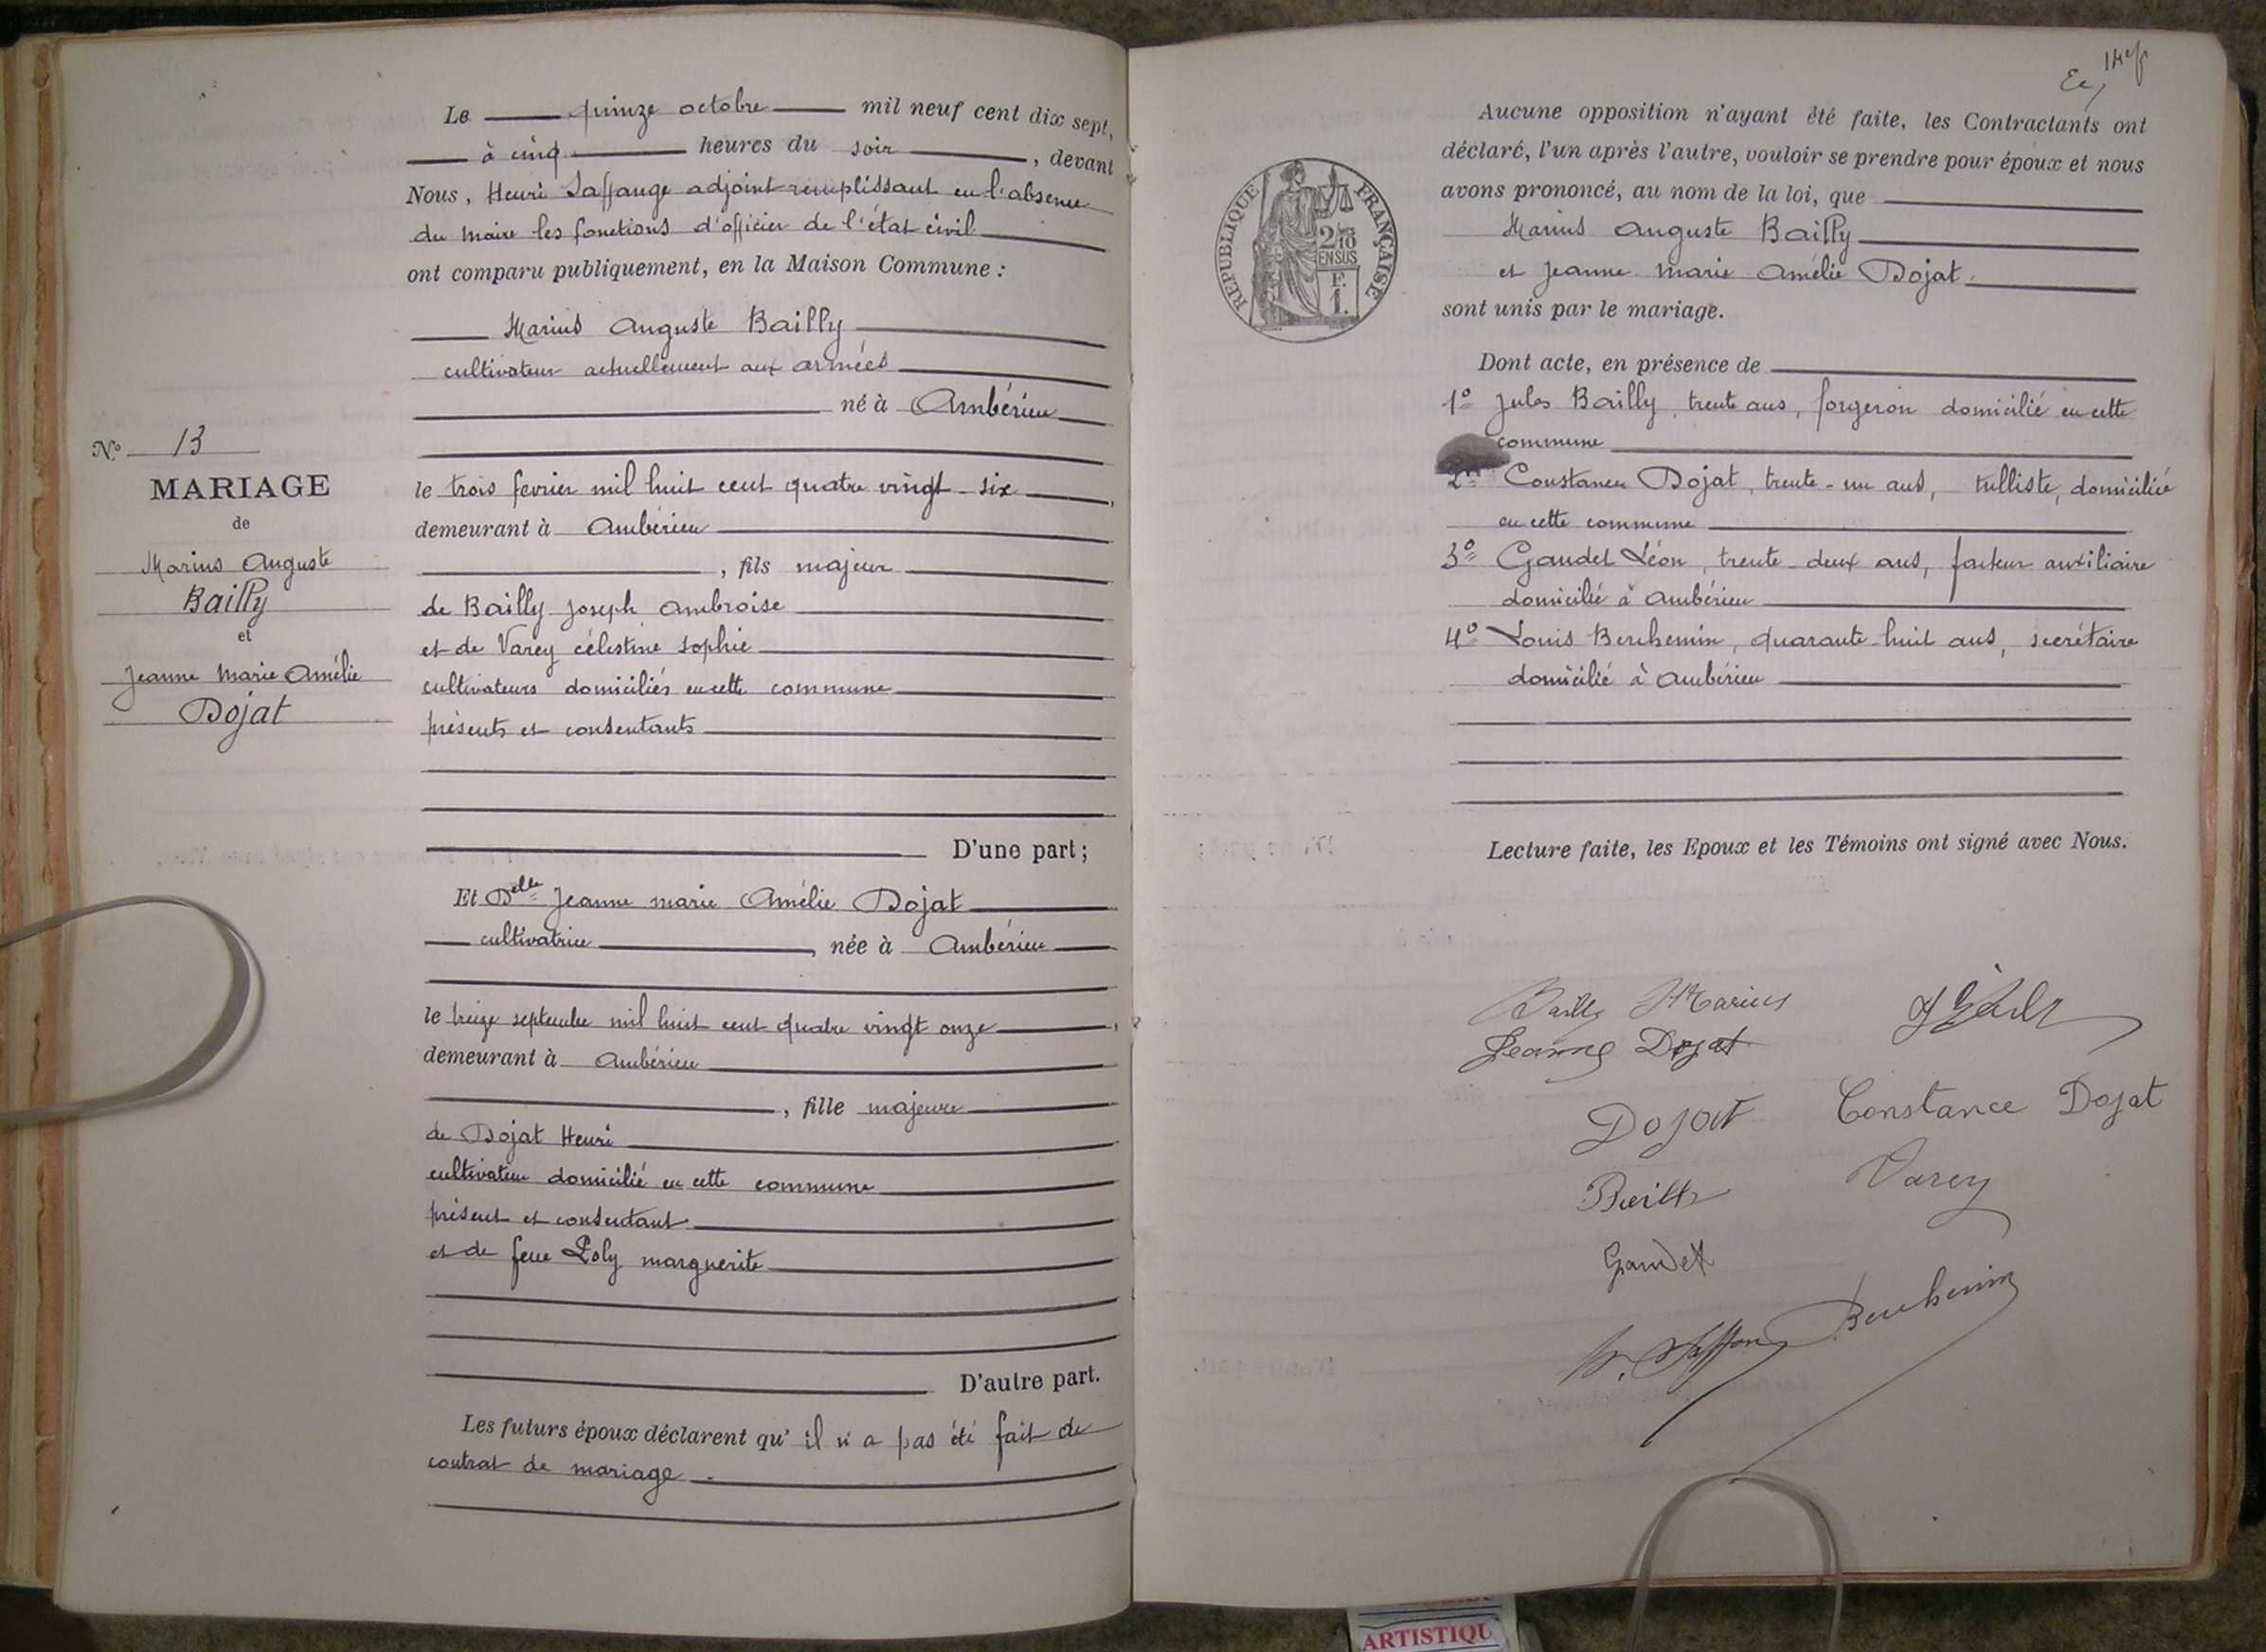 Le quinze octobre mil neuf cent dix sept,
à cinq heures du soir, devant
Nous, Henri Laffange adjoint remplissant en l'absence
du maire les fonctions d'officier de l'état civil
ont comparu publiquement, en la Maison Commune :
Marius Auguste Bailly
cultivateur actuellement aux armées
né à Ambérieu
le trois fevrier mil huit cent quatre vingt-six,
demeurant à Ambérieu
, fils majeur
de Bailly Joseph Ambroise
et de Varey célestine Sophie
cultivateurs domiciliés en cette commune
présents et consentants
D'une part;
Et Delle Jeanne marie Amélie Dojat
cultivatrice, née à Ambérieu
le treize septembre mil huit cent quatre vingt onze,
demeurant à Ambérieu
, fille majeure
de Dojat Henri
cultivateur domicilié en cette commune
présent et consentant
et de feue Poly marguerite
D'autre part.
Les futurs époux déclarent qu'il n'a pas été fait de
contrat de mariage.
No 13
MARIAGE
de
Marius Auguste
Bailly
et
Jeanne Marie Amélie
Dojat
Aucune opposition n'ayant été faite, les Contractants ont
déclaré, l'un après l'autre, vouloir se prendre pour époux et nous
avons prononcé, au nom de la loi, que
Marius Auguste Bailly
et Jeanne Marie Amélie Dojat
sont unis par le mariage.
Dont acte, en présence de
1o Jules Bailly, trente ans, forgeron domicilié en cette
commune
2o Constance Dojat, trente-un ans, tulliste, domiciliée
en cette commune
3o Gaudet Léon, trente-deux ans, facteur auxiliaire
domicilié à Ambérieu
4o Louis Berchemin, quarante-huit ans, secrétaire
domicilié à Ambérieu
Lecture faite, les Epoux et les Témoins ont signé avec Nous.
REPUBLIQUE FRANÇAISE
2/10
EN SUS
F.
1.
Bailly Marius
Jeanne Dojat
Dojat
Constance Dojat
Varey
Gaudet
Berchemin
ARTISTIQU